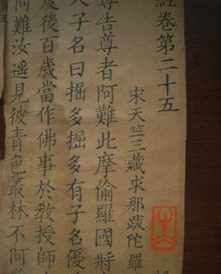 經卷第二十五
宋天竺三藏求那跋陀羅
尊告尊者阿難此摩偷羅國將
人子名曰掘多掘多有子名優
度後百歲當作佛事於教授師
阿難汝遙見彼青色叢林不阿